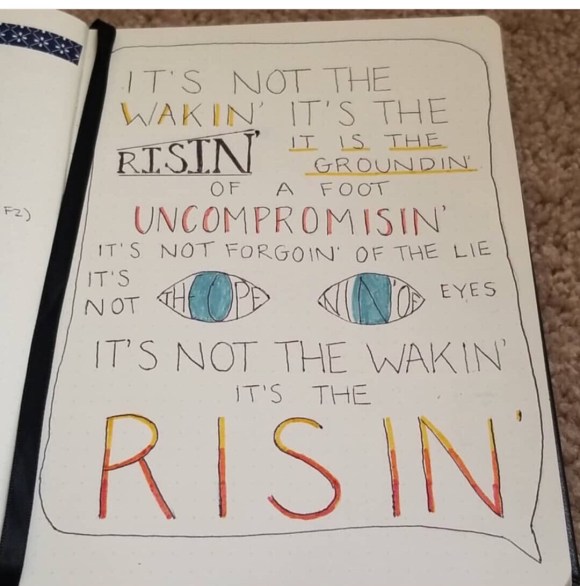 F2)
IT'S NOT THE
WAKIN' IT'S THE
RISIN' IT IS THE
GROUNDIN'
OF A FOOT
UNCOMPROMISIN'
IT'S NOT FORGOIN' OF THE LIE
IT'S
NOT THE OPENIN' OF EYES
IT'S NOT THE WAKIN'
IT'S THE
RISIN'